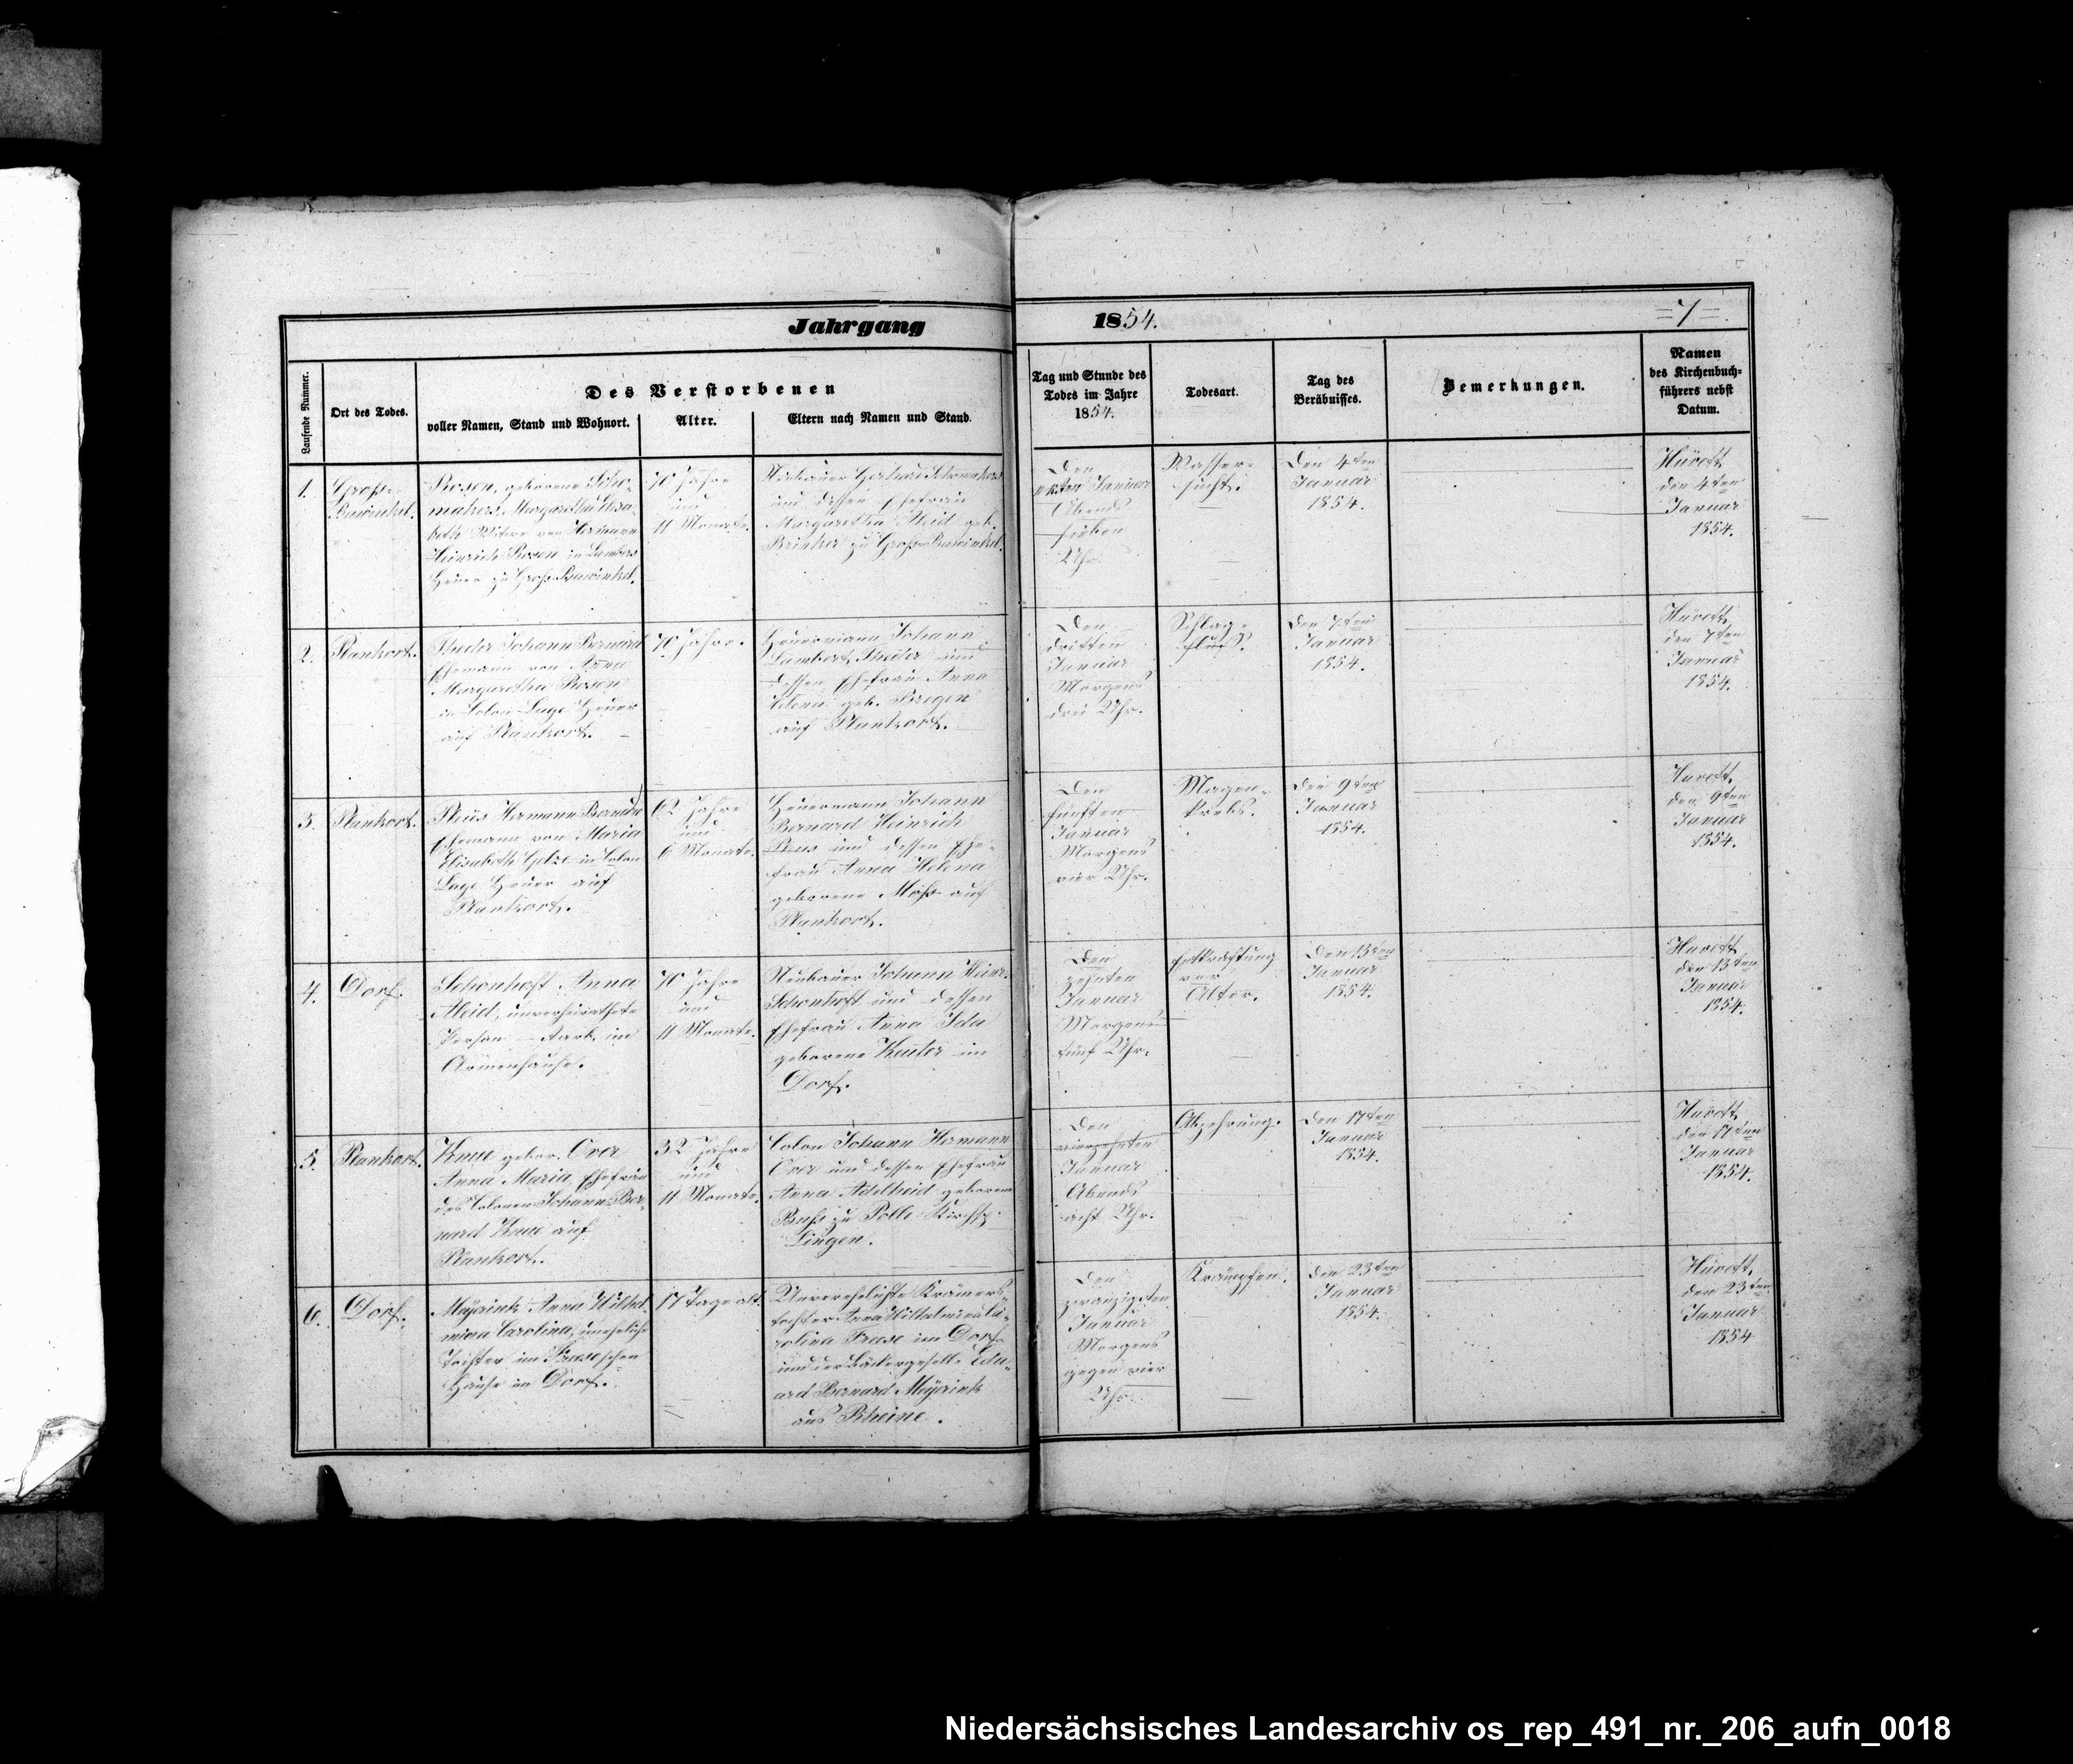 Jahrgang 1854.
=7=
Laufende Nummer.
Ort des Todes.
Des Verstorbenen
voller Namen, Stand und Wohnort.
Alter.
Eltern nach Namen und Stand.
Tag und Stunde des
Todes im Jahre
1854.
Todesart.
Tag des
Beräbnisses.
Bemerkungen.
Namen
des Kirchenbuch-
führers nebst
Datum.
1.
Groß-
Bawinkel.
Rosen, geborene Scho-
makers, Margaretha Elisa-
beth Witwe von Hermann
Heinrich Rosen in Lambers
Heuer zu Groß-Bawinkel.
70 Jahre
und
11 Monate.
Neubauer Gerhard Schomakers
und dessen Ehefrau
Margaretha Aleid geb.
Brinker zu Groß-Bawinkel.
Den
ersten Januar
Abends
sieben
Uhr.
Wasser-
sucht.
Den 4ten
Januar
1854.
den 4ten
Januar
1854.
2.
Plankort.
Johann Bernard
Ehemann von Anna
Margaretha Rosen
in Colon Lage Heuer
auf Plankort.
70 Jahre.
Heuermann Johann
Lambert und
dessen Ehefrau Anna
Helena geb.
auf Plankort.
Den
dritten
Januar
Morgens
drei Uhr.
Schlag-
fluß.
Den 7ten
Januar
1854.
den 7ten
Januar
1854.
3.
Plankort.
Hermann Bernard
Ehemann von Maria
Elisabeth in Colon
Lage Heuer auf
Plankort.
62 Jahre
und
6 Monate.
Heuermann Johann
Bernard Heinrich
und dessen Ehe-
frau Anna Helena
geborene auf
Plankort.
Den
fünften
Januar
Morgens
vier Uhr.
Magen-
krebs.
Den 9ten
Januar
1854.
den 9ten
Januar
1854.
4.
Dorf.
Schonhoft Anna
Aleid, unverheirathete
Person - starb im
Armenhause.
70 Jahre
und
11 Monate.
Neubauer Johann Heinr.
Schonhoft und dessen
Ehefrau Anna
geborene im
Dorf.
Den
zehnten
Januar
Morgens
fünf Uhr.
Entkräftung
vor
Alter.
Den 13ten
Januar
1854.
den 13ten
Januar
1854.
5.
Plankort.
Knue gebor. Over
Anna Maria Ehefrau
des Colonen Johann Ber-
nard Knue auf
Plankort.
32 Jahre
und
11 Monate.
Colon Johann Hermann
Over und dessen Ehefrau
Anna Adelheid geborene
zu Polle Kirchsp.
Lingen.
Den
vierzehnten
Januar
Abends
acht Uhr.
Abzehrung.
Den 17ten
Januar
1854.
den 17ten
Januar
1854.
6.
Dorf.
Meyrink Anna Wilhel-
mina Carolina, uneheliche
Tochter im Freeseschen
Hause im Dorf.
17 Tage alt.
Unverehelichte Krämers-
tochter Anna Wilhelmina Ca-
rolina Freese im Dorf
und der Bäckergeselle Edu-
ard Bernard Meyrink
aus Rheine.
Den
zwanzigsten
Januar
Morgens
gegen vier
Uhr.
Krämpfen.
Den 23ten
Januar
1854.
den 23ten
Januar
1854
Niedersächsisches Landesarchiv os_rep_491_nr._206_aufn_0018